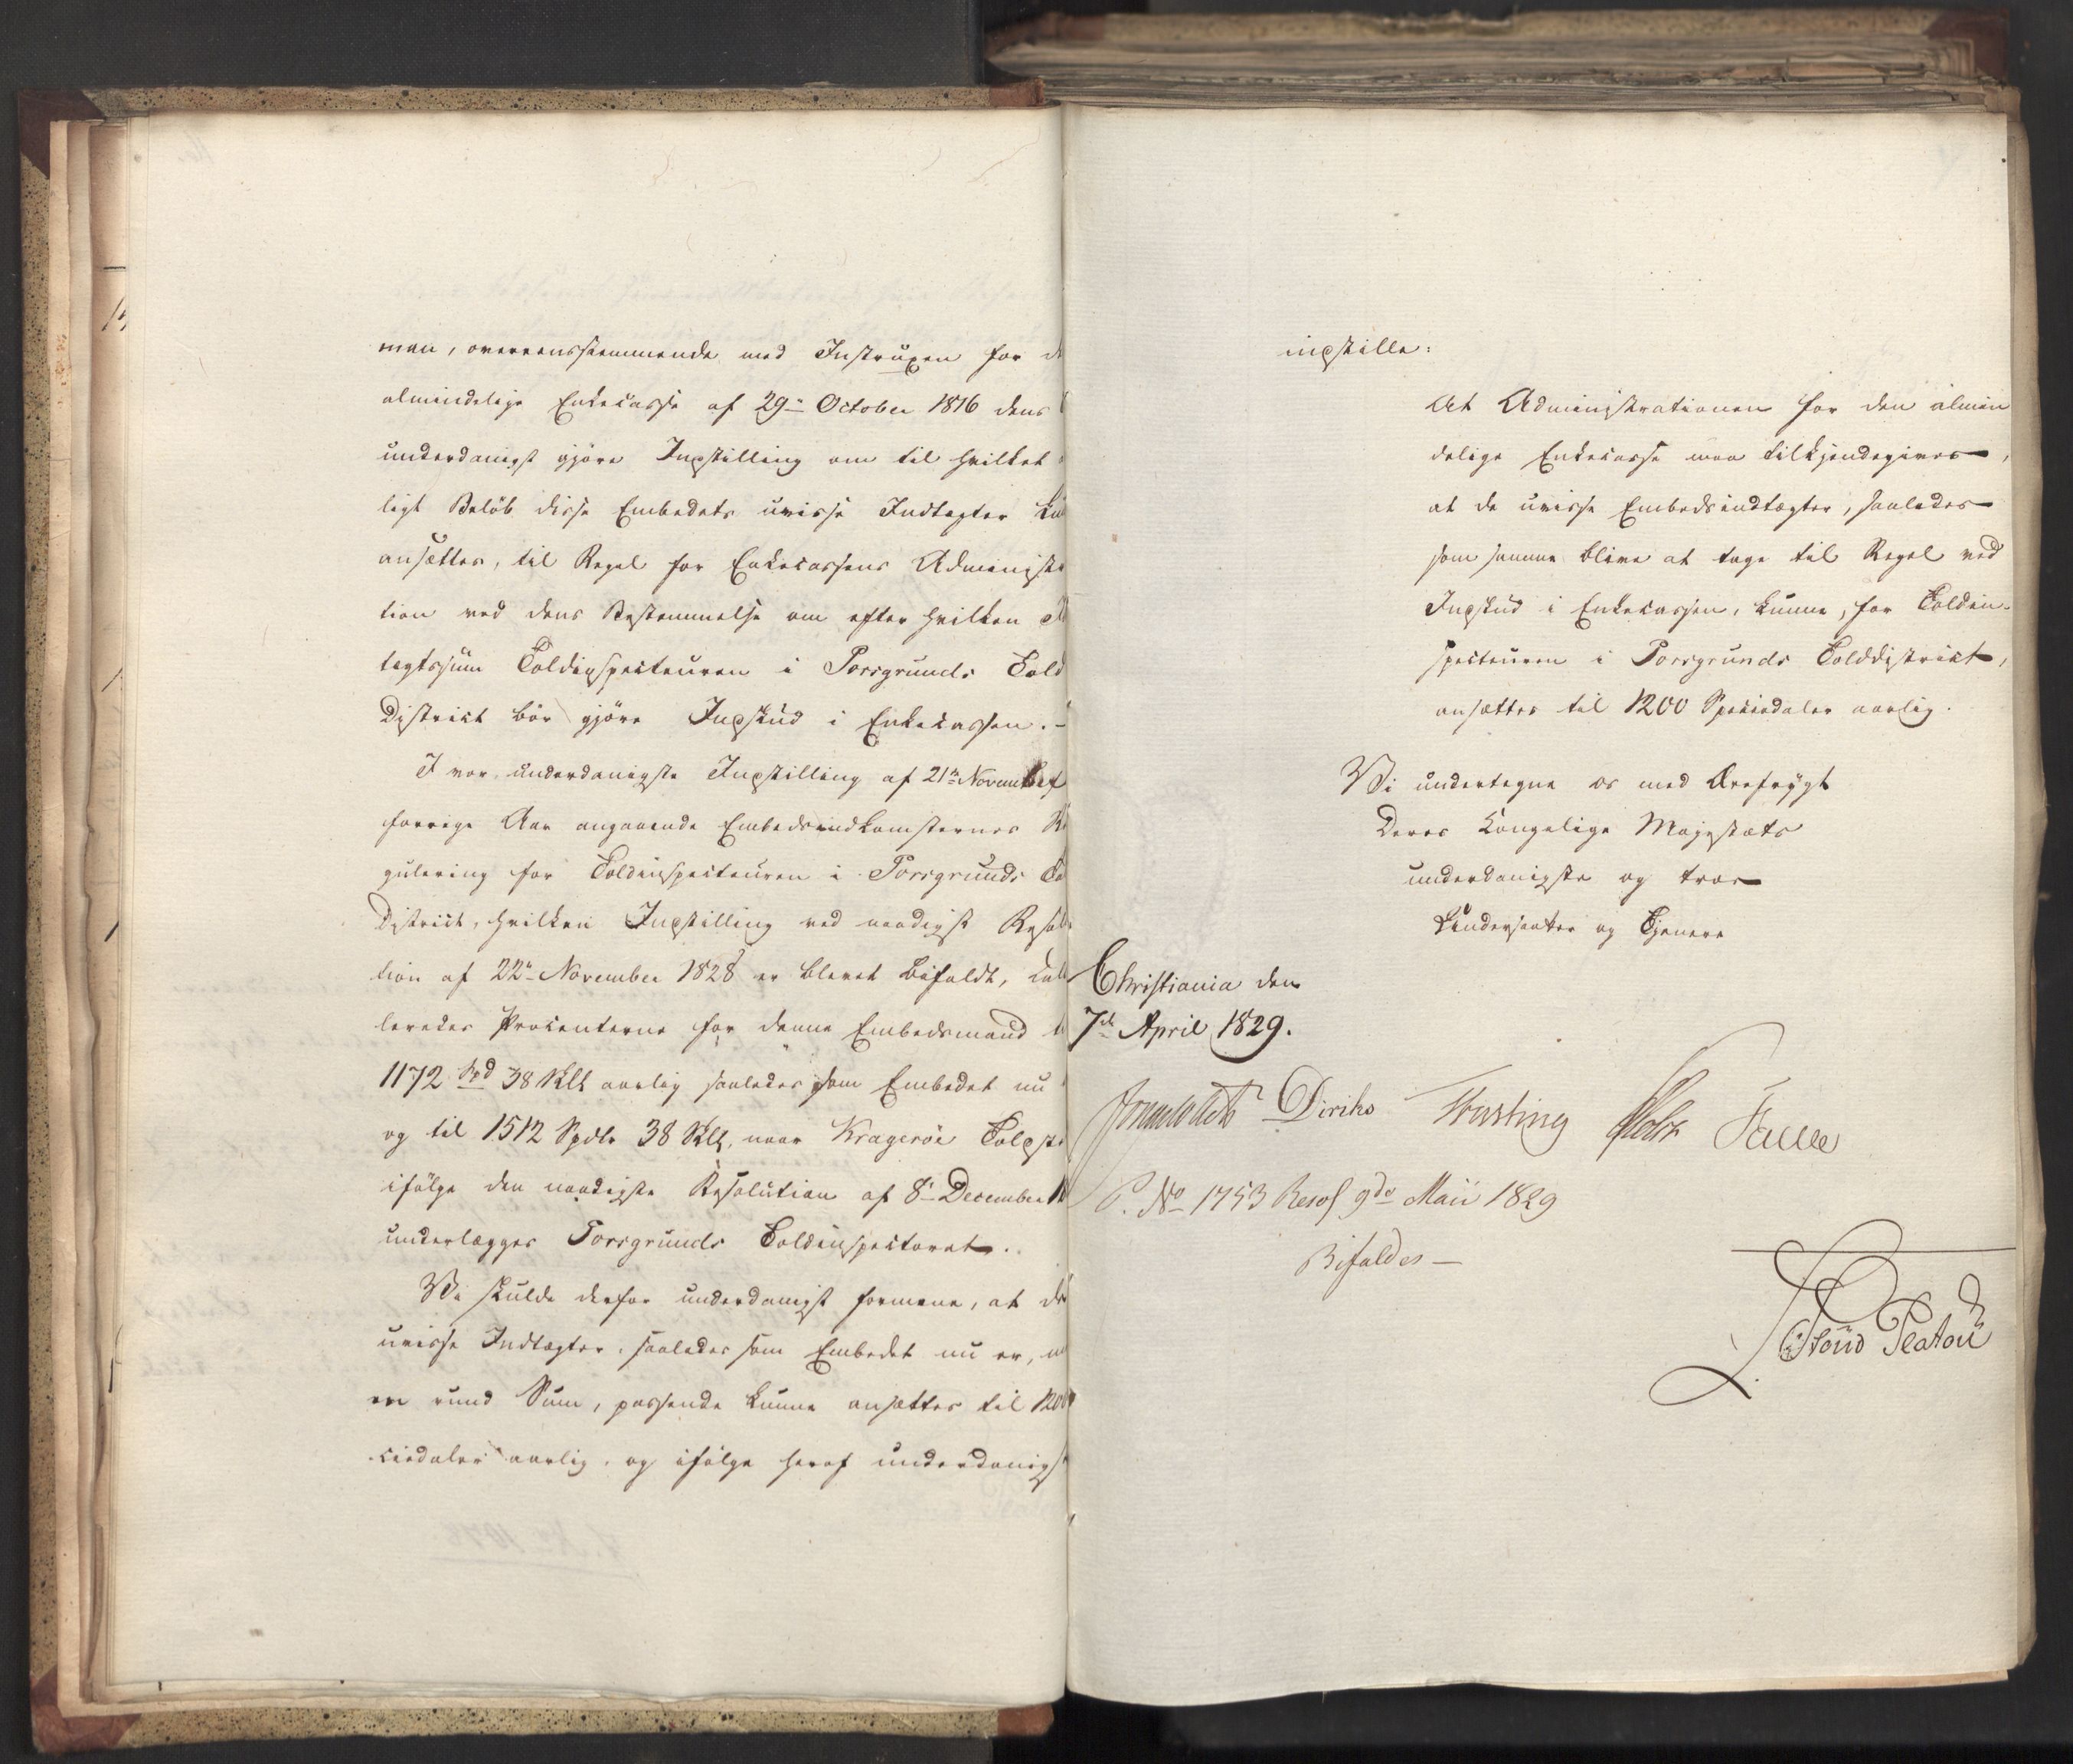 men, overeensstemmende med Instruxen for d
almindelige Enkecasse af 29de October 1816 dens
underdanigst gjöre Indstilling om til hvilket
ligt Belöb disse Embedets uvisse Indtægter kun
ansættes, til Regel for Enkecassens Administra
tion ved dens Bestemmelse om efter hvilken
tægtssum Toldinspecteuren i Porsgrunds Told
District bör gjöre Indskud i Enkecassen. -
I vor underdanigste Indstilling af 21de November
forrige Aar angaaende Embedsindkomsternes Re
gulering for Toldinspecteuren i Porsgrunds To
District, hvilken Indstilling ved naadigst Resolu
tion af 22de November 1828 er blevet bifaldt, cal
leredes Procenterne for denne Embedsmand
1172 Spd 38 Skl aarlig saaledes som Embedet nu
og til 1512 Spdlr 38 Skl, naar Krageröe Toldste
ifölge den naadigste Resolution af 8de December 18
underlægges Porsgrunds Toldinspectorat.
Vi skulde derfor underdanigst formene, at de
uvisse Indtægter, saaledes som Embedet nu er,
en rund Sum, passende kunne ansættes til 1200
ciedaler aarlig, og ifölge heraf underdanigst
indstille:
At Administrationen for den almin
delige Enkecasse maa tilkjendegives,
at de uvisse Embedsindtægter, saaledes
som samme blive at tage til Regel ved
Indskud i Enkecassen, kunne, for Toldin-
specteuren i Porsgrunds Tolddistrict,
ansættes til 1200 Speciedaler aarlig.
Vi undertegne os med Ærefrygt
Deres Kongelige Majestæts
underdanigste og troe
Undersaatter og Tjenere
Christiania den
7de April 1829.
Diriks Fasting Falsen
P. No 1753 Resol 9de Maii 1829
Bifaldes —
Stoud Platou